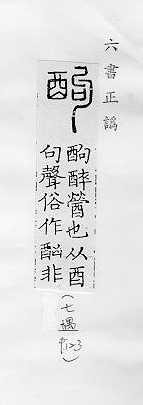 六書正譌
𨠯
𨠯醉醟也从酉
句聲俗作酗非
(七遇
)